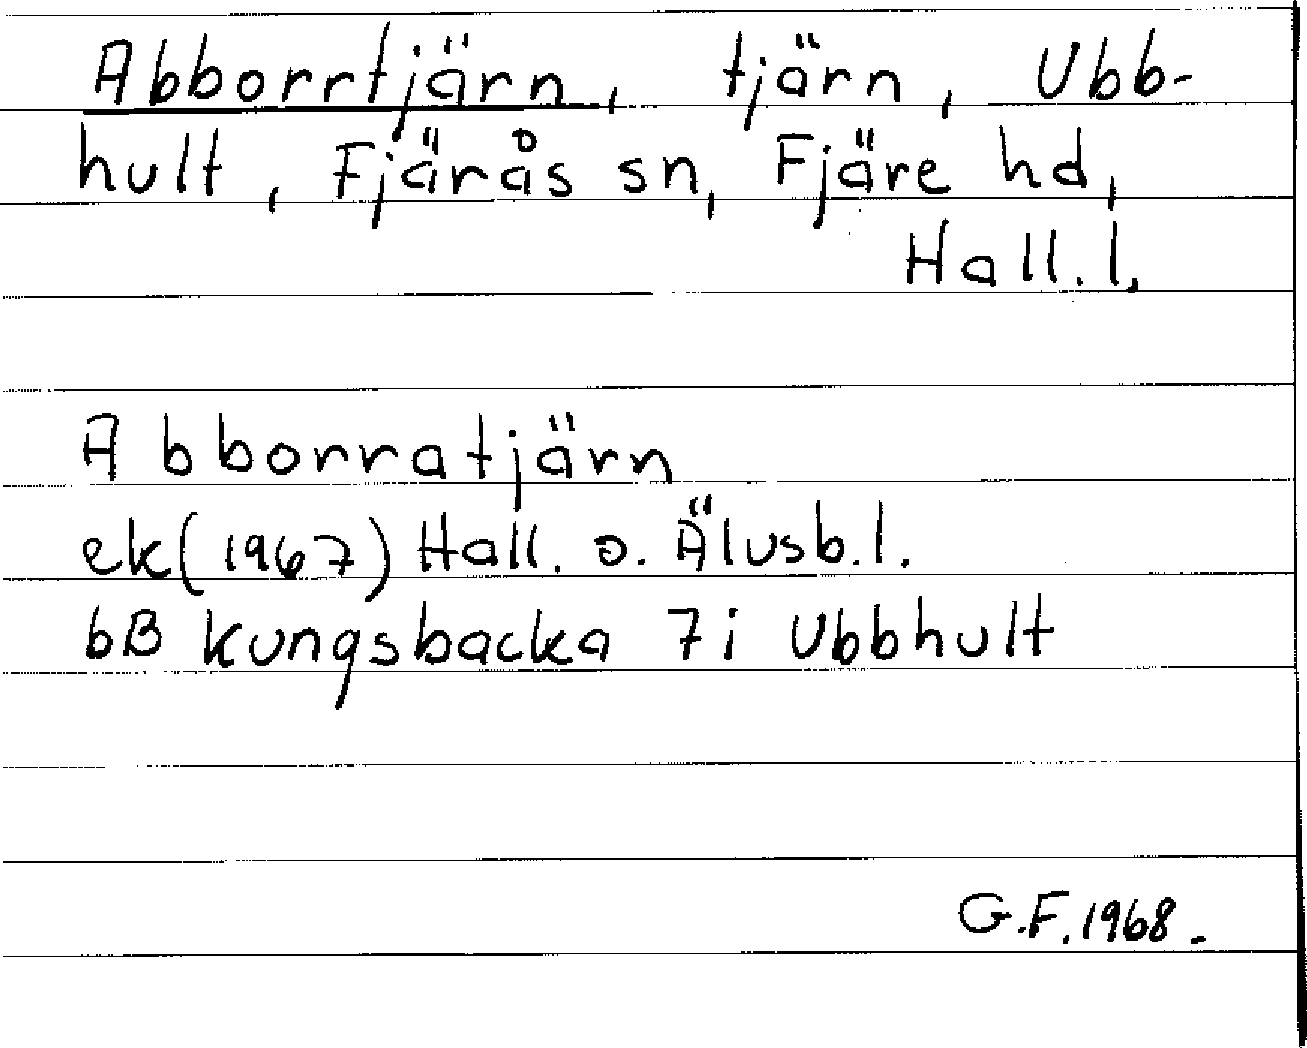 Abborrtjärn, tjärn, Ubb-
hult, Fjärås sn, Fjäre hd,
Hall. l.
Abborratjärn
ek (1967) Hall. o. Älvsb. l.
6B Kungsbacka 7i Ubbhult
G.F. 1968.